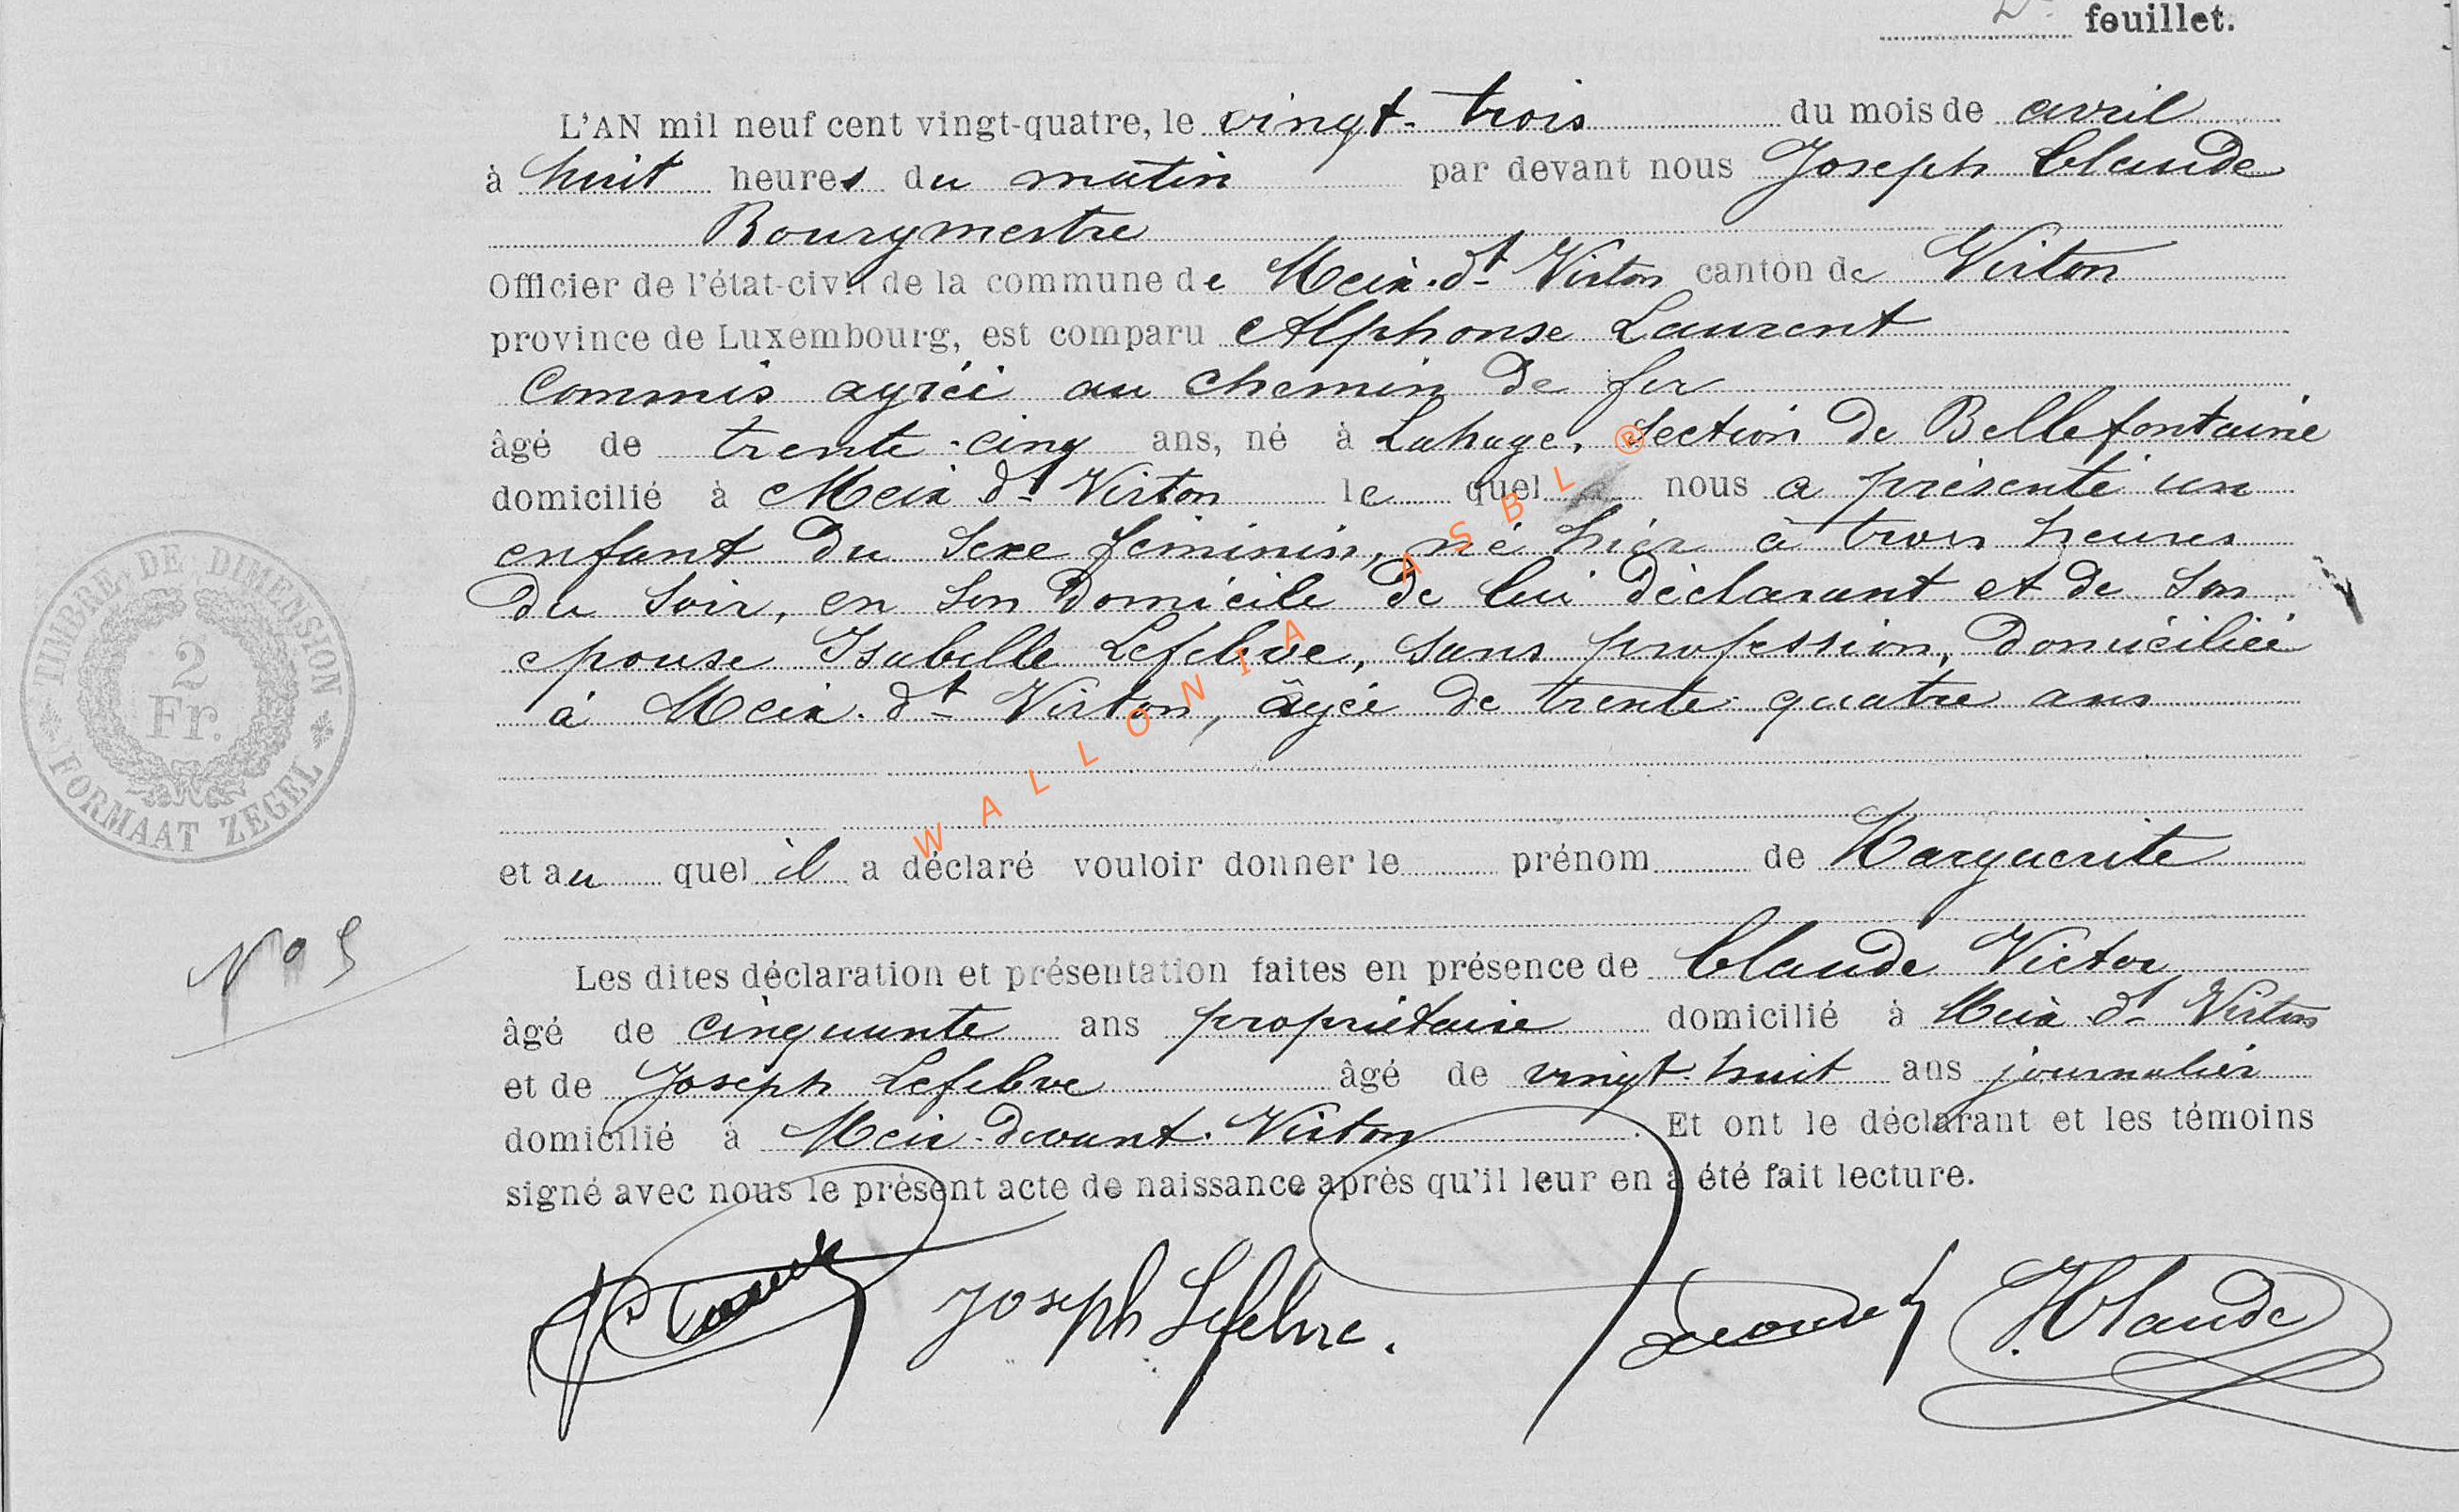 2e feuillet.
L'AN mil neuf cent vingt-quatre, le vingt-trois du mois de avril
à huit heures du matin par devant nous Joseph Claude
Bourgmestre
Officier de l'état-civil de la commune de Meix-dt Virton canton de Virton
province de Luxembourg, est comparu Alphonse Laurent
Commis agréé au chemin de fer
âgé de trente-cinq ans, né à Lahage, section de Bellefontaine
domicilié à Meix dt Virton lequel nous a présenté un
enfant du sexe féminin, né hier à trois heures
du soir, en son domicile de lui déclarant et de son
épouse Isabelle Lefebve, sans profession, domiciliée
à Meix-dt Virton, âgée de trente-quatre ans
et au quel il a déclaré vouloir donner le prénom de Marguerite
Les dites déclaration et présentation faites en présence de Claude Victor
âgé de cinquante ans propriétaire domicilié à Meix dt Virton
et de Joseph Lefebve âgé de vingt-huit ans journalier
domicilié à Meix-devant-Virton. Et ont le déclarant et les témoins
signé avec nous le présent acte de naissance après qu'il leur en a été fait lecture.
Joseph Lefebvre. JClaude
N° 5
TIMBRE DE DIMENSION
2
Fr.
FORMAAT ZEGEL
WALLONIA ASBL ®